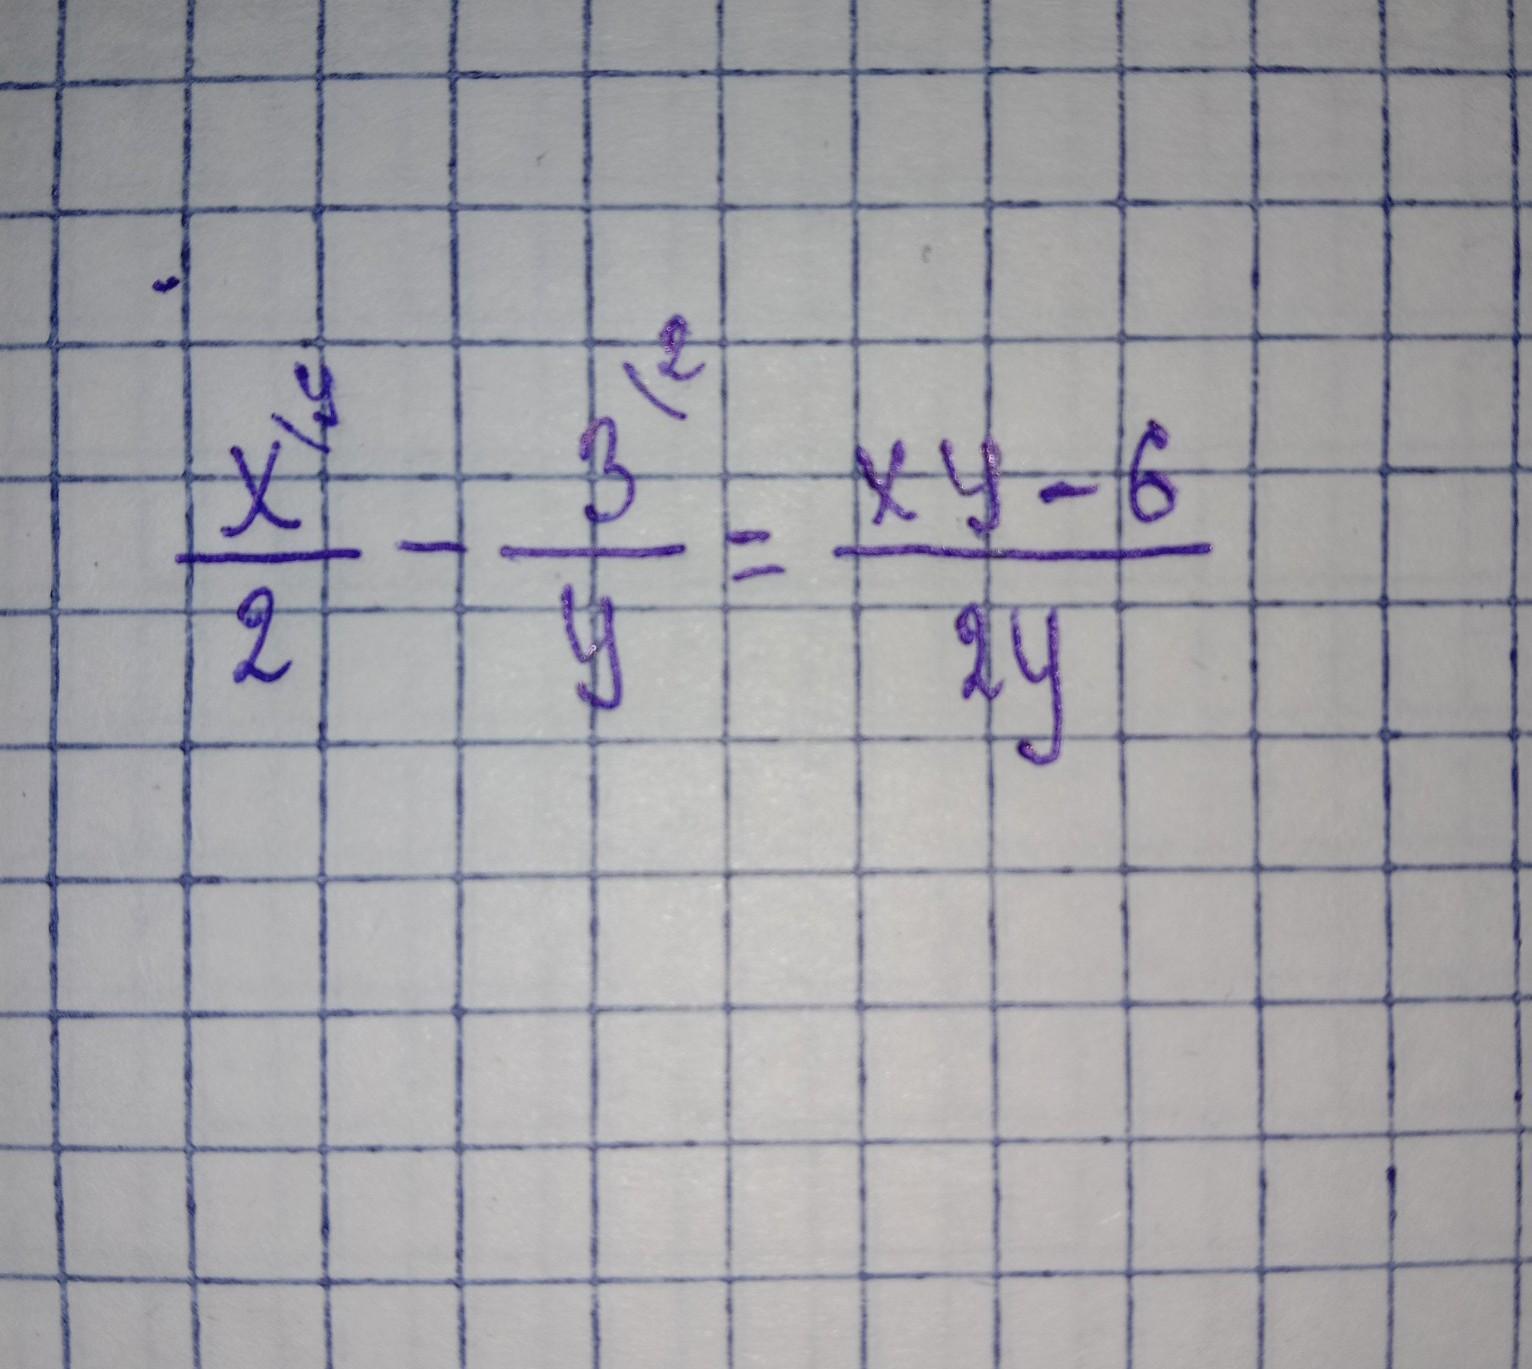 x\y/2 - 3\2/y = xy - 6/2y